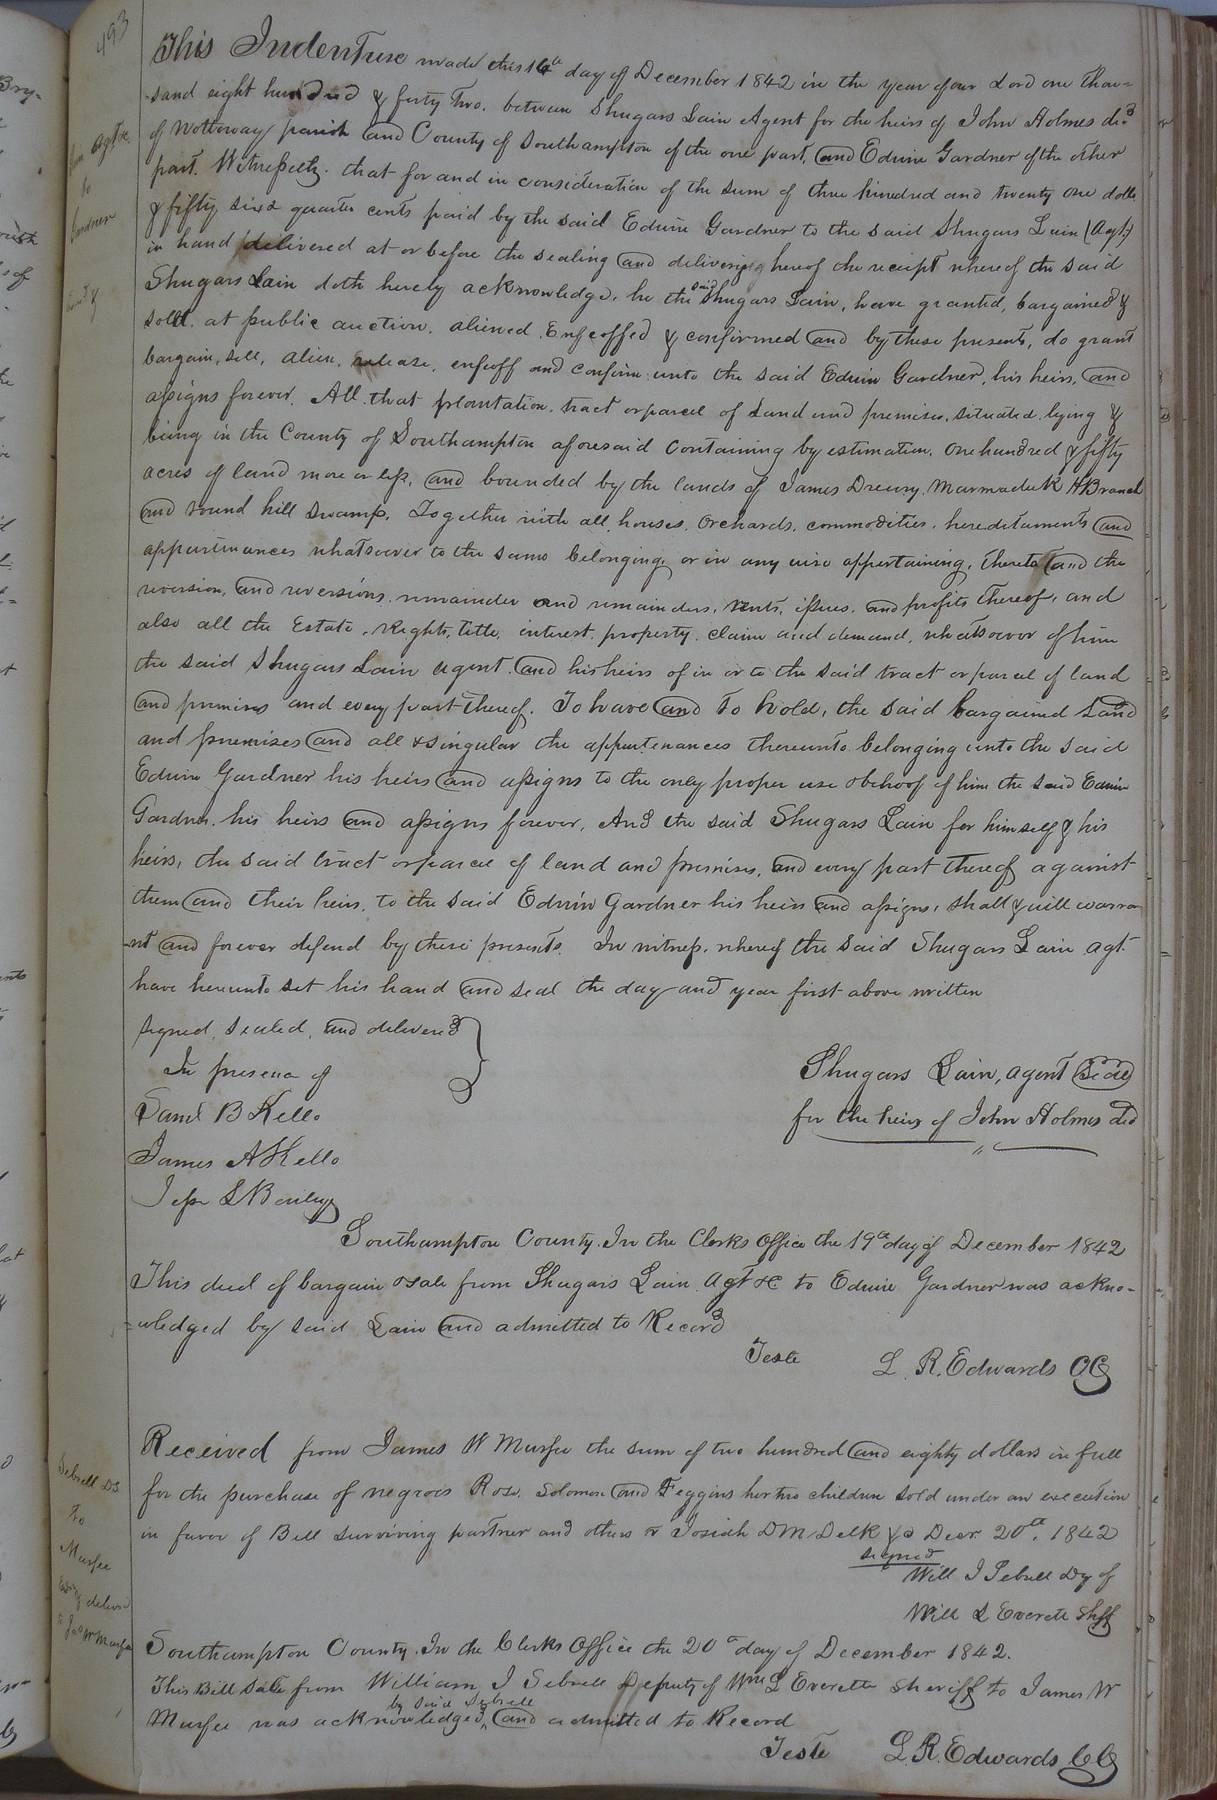 493
This Indenture made this 14th day of December 1842 in the year of our Lord one thou-
sand eight hundred & forty Two. between Shugars Lain Agent for the heirs of John Holmes decd
of Nottoway parish and County of Southampton of the one part, and Edwin Gardner of the other
part. Witnesseth. that for and in consideration of the sum of three hundred and twenty one dolls
& fifty six & quarter cents paid by the said Edwin Gardner to the said Shugars Lain (Agt.)
in hand delivered at or before the sealing and delivering hereof the receipt whereof the said
Shugars Lain doth hereby acknowledge. he the said Shugars Lain, have granted, bargained &
sold. at public auction. aliened. Enfeoffed & confirmed and by these presents, do grant
bargain, sell, alien, release, enfeoff and confirm unto the said Edwin Gardner, his heirs, and
assigns forever. All that plantation. tract or parcel of Land and premises. situated. lying &
being in the County of Southampton aforesaid Containing by estimation. one hundred & fifty
acres of land more or less, and bounded by the lands of James Drewry, Marmaduk H Branch
and round hill swamp. Together with all houses. Orchards. commodities. hereditaments and
appurtenances whatsoever to the same belonging, or in any wise appertaining, thereto and the
reversion, and reversions. remainder and remainders, rents, issues, and profits thereof, and
also all the Estate. Rights, title, interest. property. claim and demand, whatsoever of him
the said Shugars Lain agent. and his heirs of in or to the said tract or parcel of land
and premises and every part thereof. To have and to hold, the said bargained Land
and premises and all & singular the appurtenances thereunto belonging unto the said
Edwin Gardner his heirs and assigns to the only proper use & behoof of him the said Edwin
Gardner. his heirs and assigns forever, And the said Shugars Lain for himself & his
heirs, the said tract or parcel of land and premises, and every part thereof against
them and their heirs. to the said Edwin Gardner his heirs and assigns, shall & will warra
-nt and forever defend by these presents. In witness, whereof the said Shugars Lain agt.
have hereunto set his hand and seal the day and year first above written
signed, sealed, and delivered
In presence of
Shugars Lain, agent Seal
Saml B Kello
for the heirs of John Holmes decd
James A Kello
Jesse L Bailey
Southampton County. In the Clerks Office the 19th day of December 1842
This deed of bargain & sale from Shugars Lain Agt &c to Edwin Gardner was ackno-
wledged by said Lain and admitted to Record
Teste L. R. Edwards CC
Sebrell DS
To
Murfee
delivered
to Jas W Murfee
Received from James W Murfee the sum of two hundred and eighty dollars in full
for the purchase of negroes Rose. Solomon and Feggins her two children sold under an execution
in favor of Bell surviving partner and others vs Josiah D M Delk & Decr 20th. 1842
signed
Will J Sebrell Dy of
Will L Everett Shff
Southampton County. In the Clerks Office the 20th day of December 1842.
This Bill Sale from William J Sebrell Deputy of Wm L Everett Sheriff to James W
Murfee was acknowledged by said Sebrell and admitted to Record
Teste L. R. Edwards CC